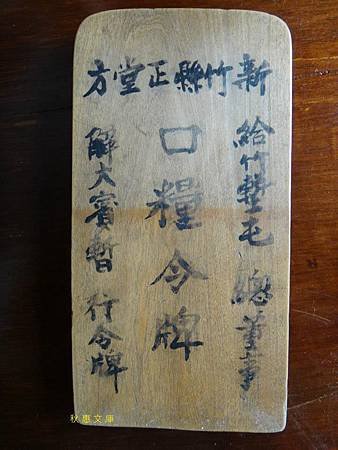 新竹縣正堂方
給竹塹屯總董事
口糧令牌
解大賓暫行令牌
秋惠文庫